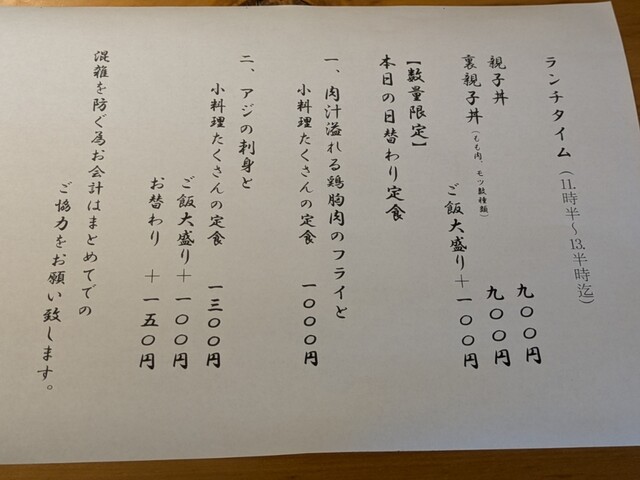 ランチタイム（11.時半～13.半時迄）
親子丼　九〇〇円
裏親子丼（もも肉、モツ数種類）　九〇〇円
ご飯大盛り＋一〇〇円
【数量限定】
本日の日替わり定食
一、肉汁溢れる鶏胸肉のフライと
小料理たくさんの定食　一〇〇〇円
二、アジの刺身と
小料理たくさんの定食　一三〇〇円
ご飯大盛り＋一〇〇円
お替わり　＋一五〇円
混雑を防ぐ為お会計はまとめてでの
ご協力をお願い致します。